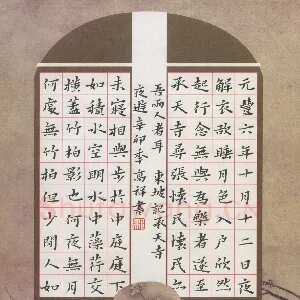 元豐六年十月十二日夜
解衣欲睡月色入户欣然
起行念無與為樂者遂至
承天寺尋張懷民懷民亦
未寢相與步於中庭庭下
如積水空明水中藻荇交
橫蓋竹柏影也何夜無月
何處無竹柏但少閑人如
吾兩人者耳 東坡記承天寺
夜遊 辛卯季高祥書